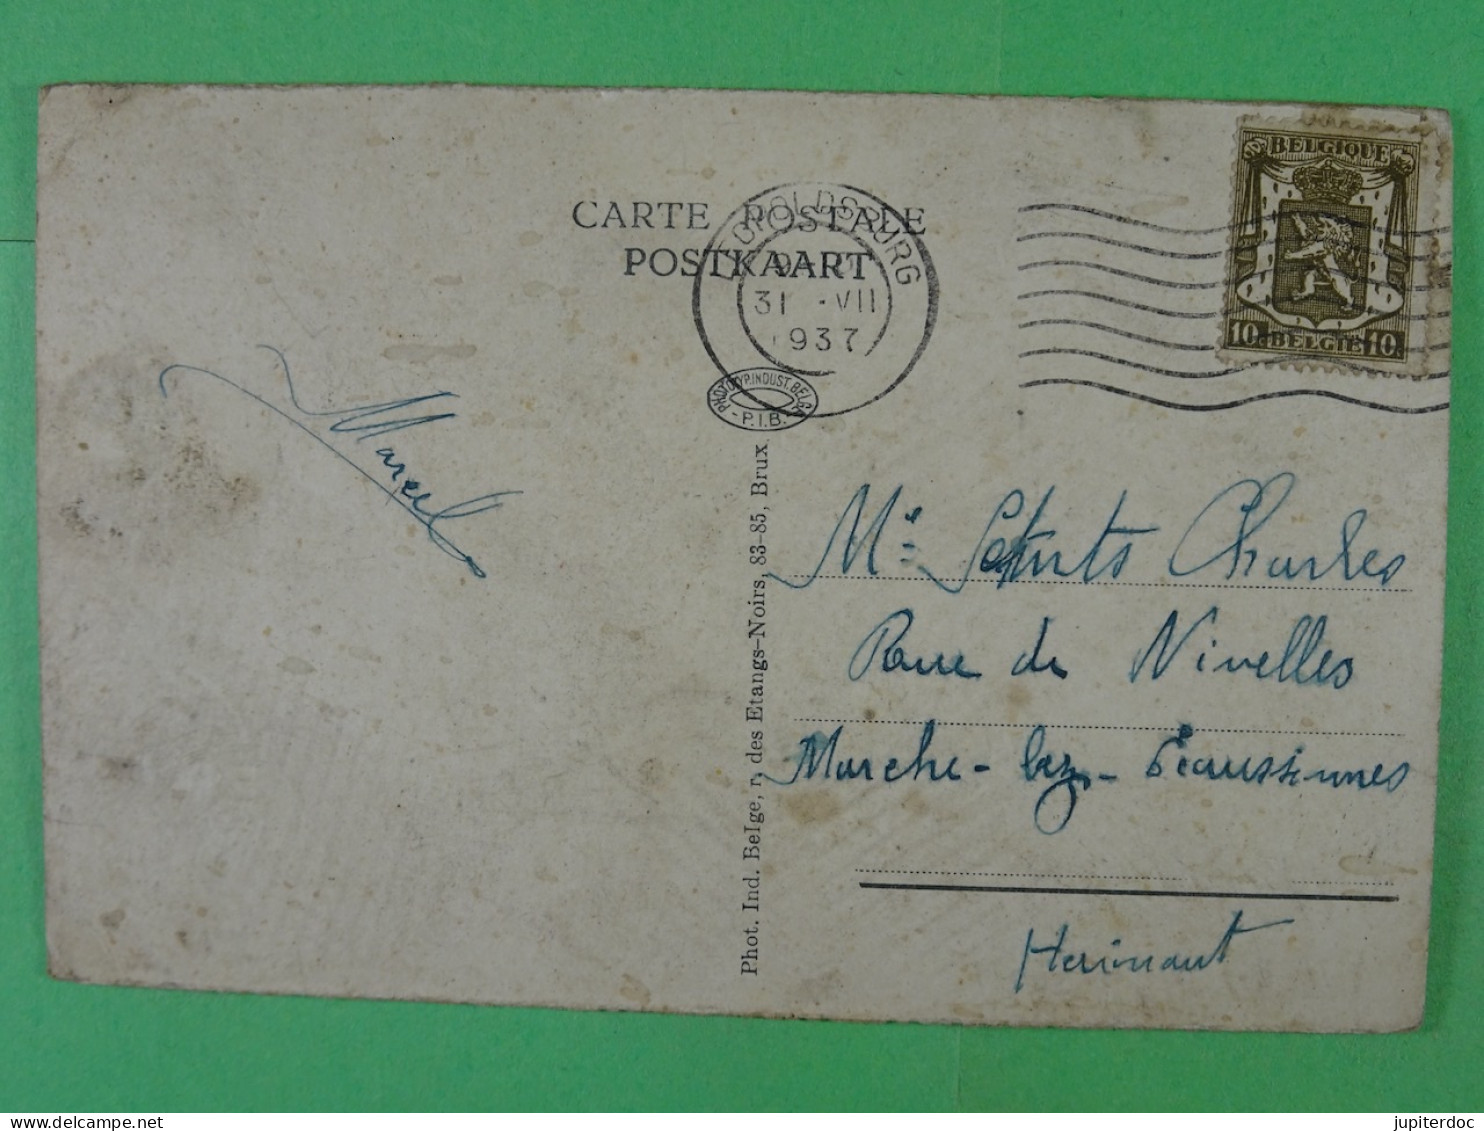 CARTE POSTALE
POSTKAART
LEOPOLDSBURG
31 -VII
1937
BELGIQUE
10c BELGIE 10c
PHOTOTYP. INDUST. BELGE
- P.I.B. -
Phot. Ind. Belge, r. des Etangs-Noirs, 83-85, Brux.
Marcel
Mr Charles
Rue de Nivelles
Marche-lez-Écaussinnes
Hainaut
jupiterdoc